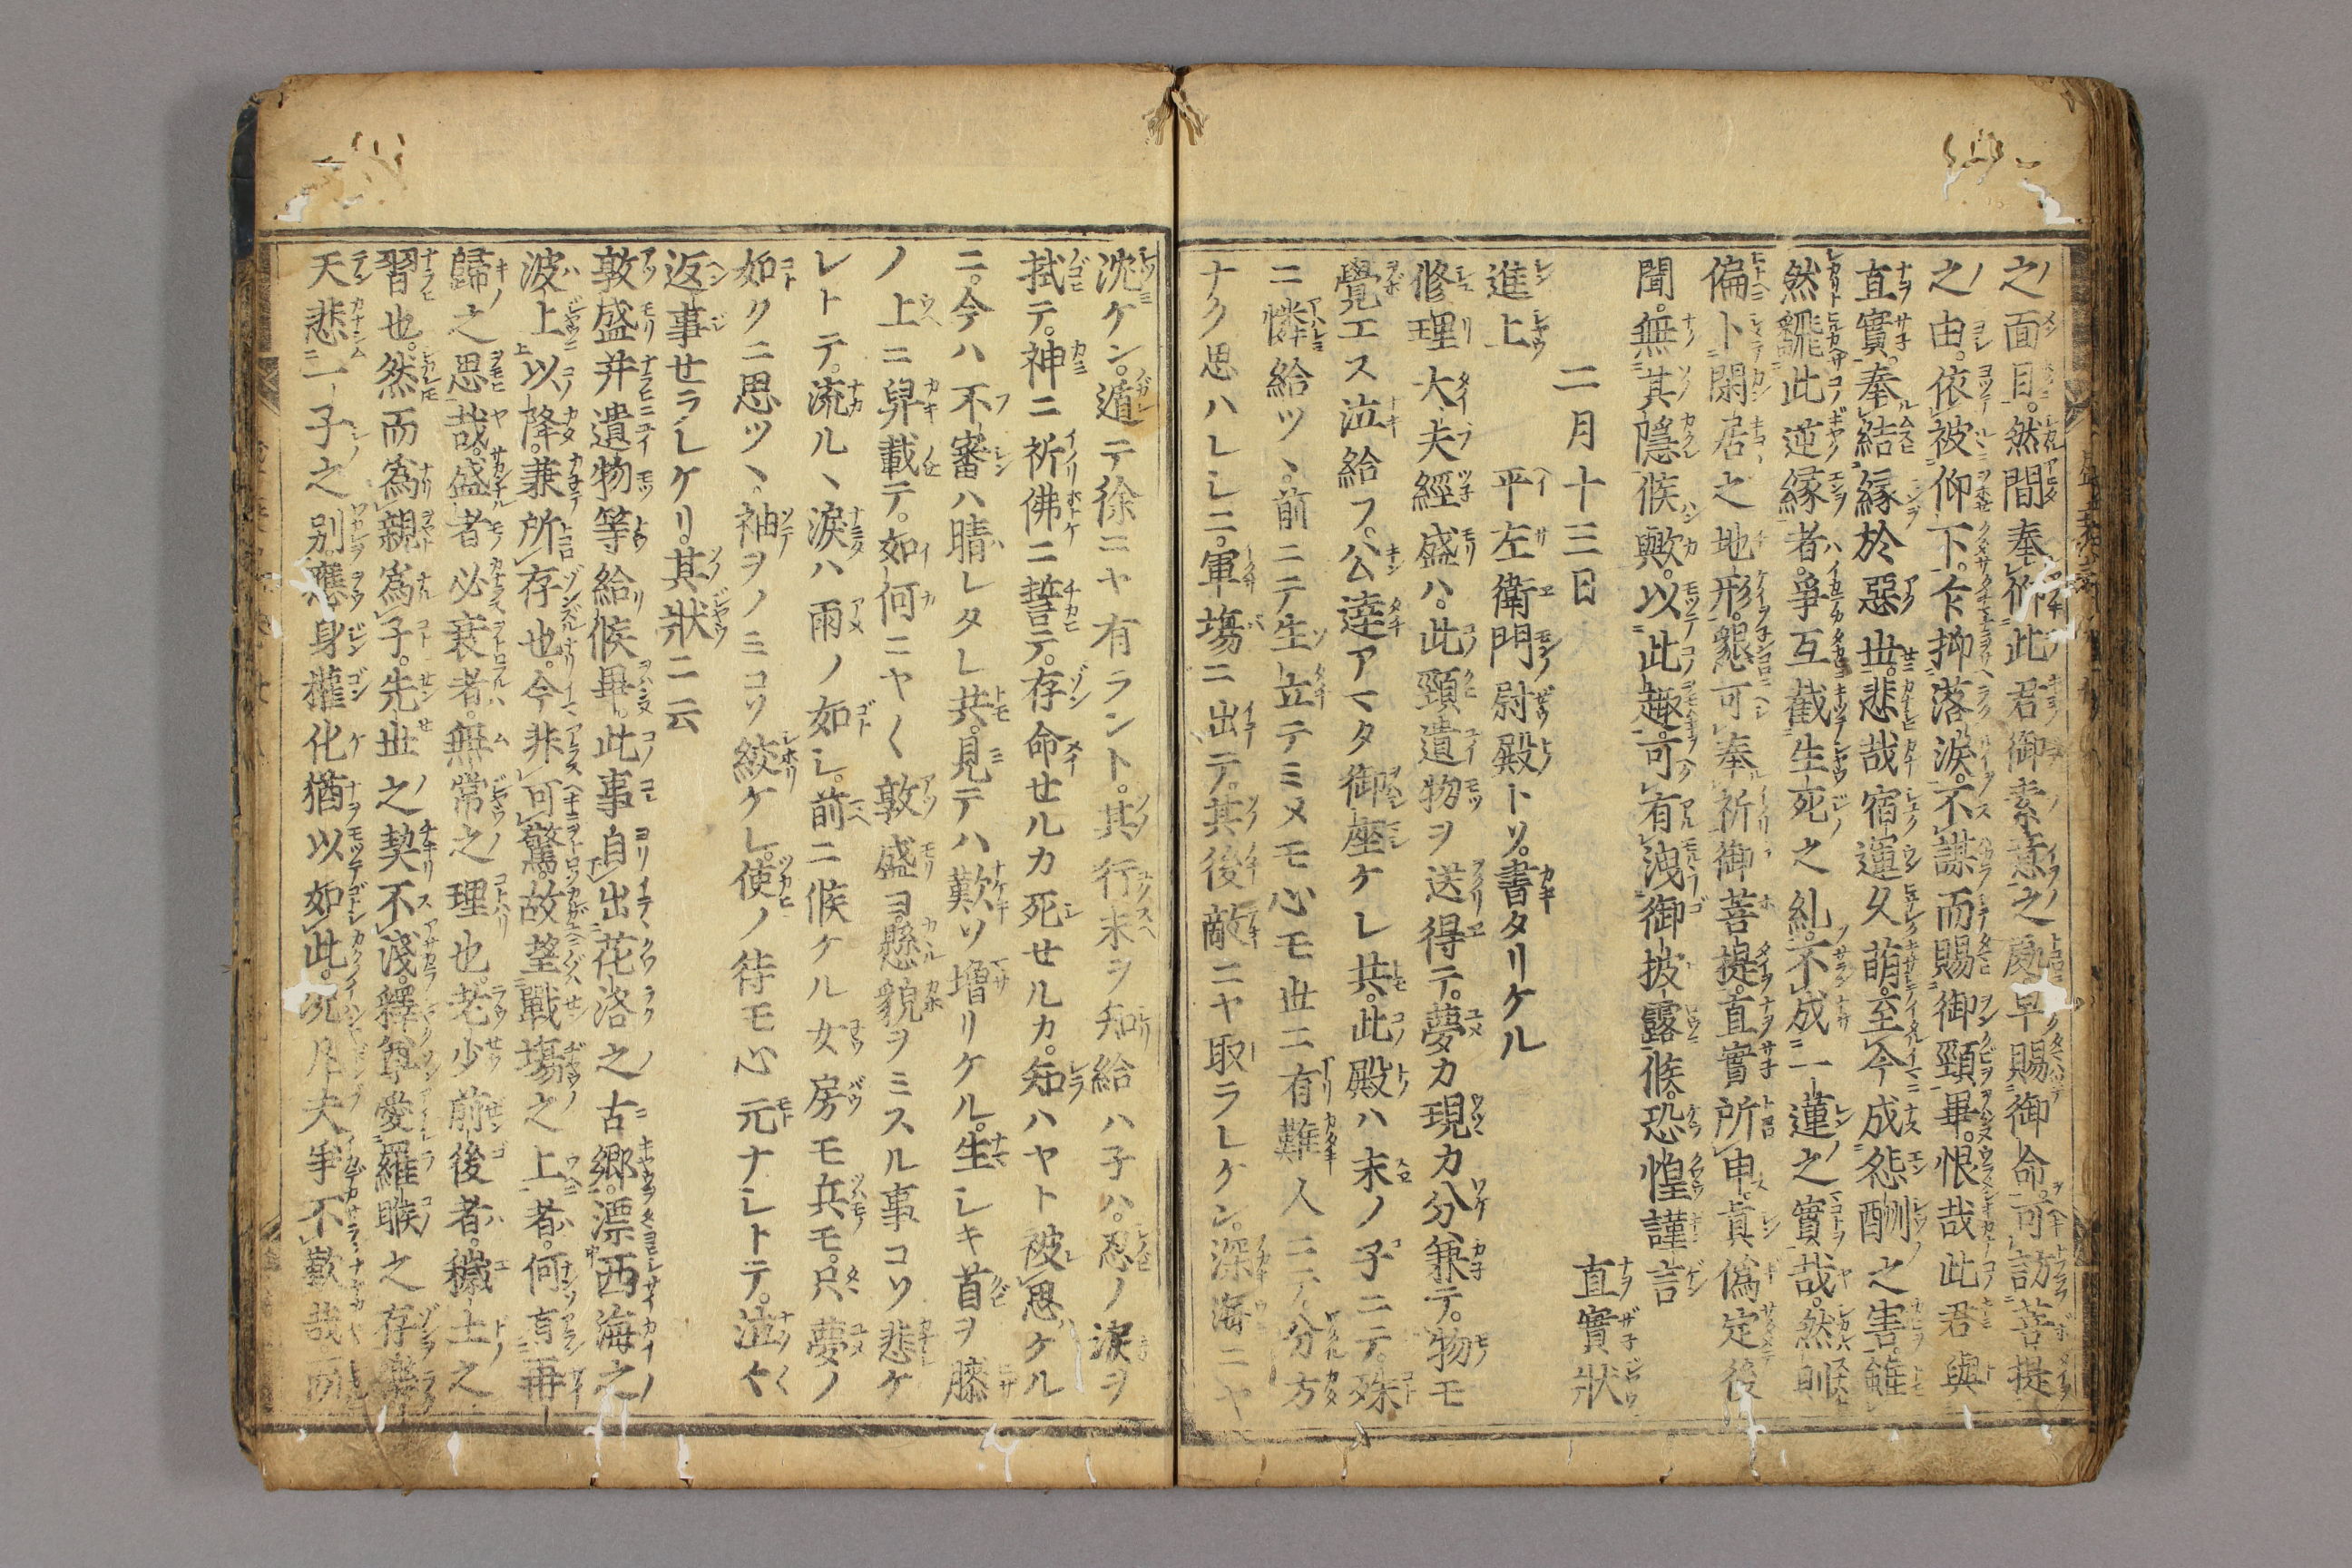 之面目。然間奉仰此君御素意之處。早賜御命。可訪菩提
之由。依被仰下。乍抑落涙。不謀而賜御頸畢。恨哉此君與
直實。奉結縁於惡世。悲哉宿運久萌。至今成怨酬之害。雖
然飜此逆縁者。爭互截生死之糺。不成一蓮之實哉。然則
偏卜閑居之地形。懇可奉祈御菩提。直實所申。眞僞定後
聞。無其隱候歟。以此趣可有洩御披露候。恐惶謹言
二月十三日
直實狀
進上 平左衛門尉殿トソ。書タリケル
修理大夫經盛ハ。此頸遺物ヲ送得テ。夢カ現カ分兼テ。物モ
覺エス泣給フ。公達アマタ御座ケレ共。此殿ハ末ノ子ニテ。殊
ニ憐給ツヽ。前ニテ生立テミヌモ心モ世ニ有難人ニテ分方
ナク思ハレシニ。軍塲ニ出テ。其後敵ニヤ取ラレケン。深海ニヤ
沈ケン。遁テ徐ニヤ有ラント。其行末ヲ知給ハ子ハ。忍ノ涙ヲ
拭テ。神ニ祈佛ニ誓テ。存命セルカ死セルカ。知ハヤト被思ケル
ニ。今ハ不審ハ晴レタレ共。見テハ歎ソ増リケル。生シキ首ヲ膝
ノ上ニ舁載テ。如何ニヤ〱敦盛ヨ。懸貌ヲミスル事コソ悲ケ
レトテ。流ルヽ涙ハ雨ノ如シ。前ニ候ケル女房モ兵モ。只夢ノ
如クニ思ツヽ。袖ヲノミコソ絞ケレ。使ノ待モ心元ナシトテ。泣〱
返事セラレケリ。其狀ニ云
敦盛并遺物等給候畢。此事自出花洛之古郷。漂西海之
波上以降。兼所存也。今非可驚。故望戰塲之上者。何有再
歸之思哉。盛者必衰者。無常之理也。老少前後者。穢土之
習也。然而爲親爲子。先世之契不淺。釋尊愛羅睺之存樂
天悲一子之別。應身權化猶以如此。況凡夫爭不歎哉。而